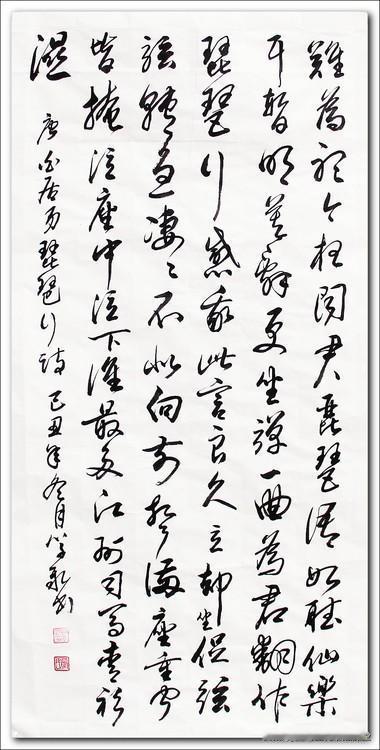 難為聽今夜聞君琵琶語如聽仙樂
耳暫明莫辭更坐彈一曲為君翻作
琵琶行感我此言良久立卻坐促弦
弦轉急淒々不似向前聲滿座重聞
皆掩泣座中泣下誰最多江州司馬青衫
濕
唐白居易琵琶行詩己丑年冬月